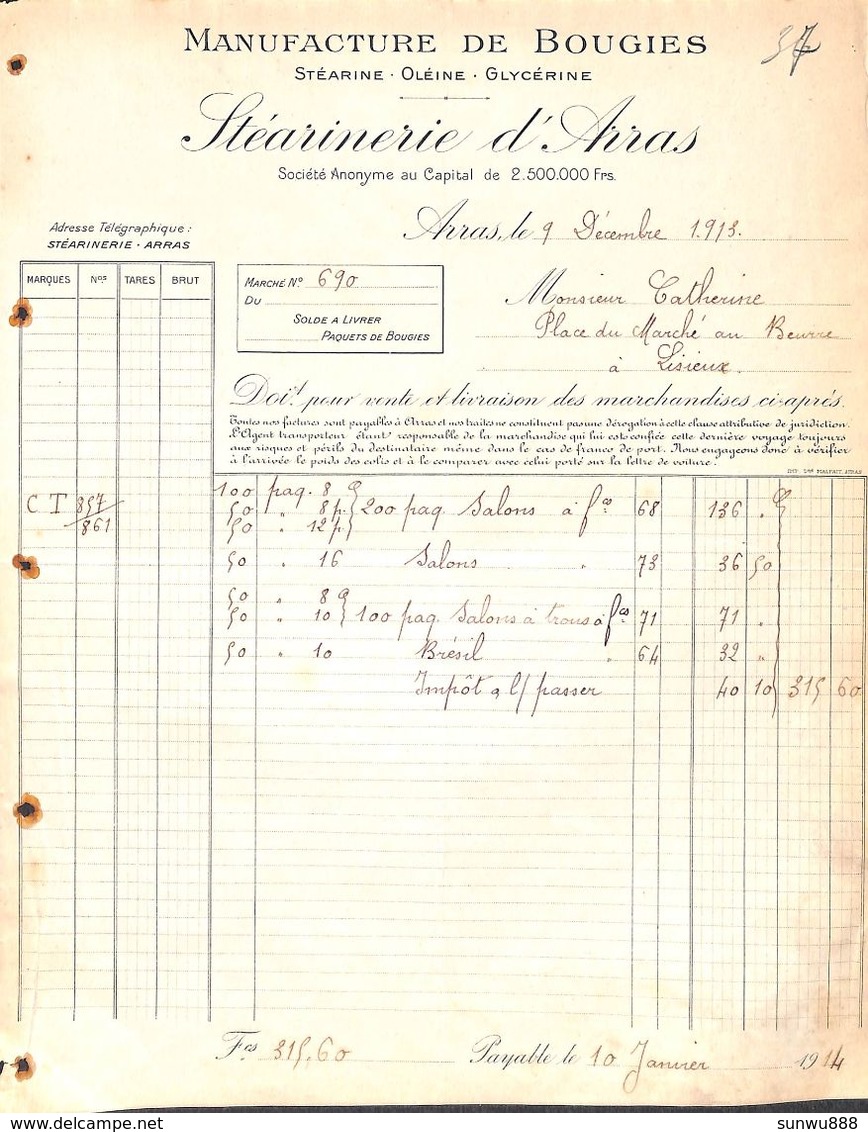 MANUFACTURE DE BOUGIES
37
STÉARINE · OLÉINE · GLYCÉRINE
Stéarinerie d'Arras
Société Anonyme au Capital de 2.500.000 Frs.
Arras, le 9 Décembre 1913.
Adresse Télégraphique :
STÉARINERIE · ARRAS
MARQUES Nos TARES BRUT
MARCHÉ No 690
DU
SOLDE A LIVRER
PAQUETS DE BOUGIES
Monsieur Catherine
Place du Marché au Beurre
à Lisieux.
Doit pour vente et livraison des marchandises ci-après.
Toutes nos factures sont payables à Arras et nos traites ne constituent pas une dérogation à cette clause attributive de juridiction.
L'Agent transporteur étant responsable de la marchandise qui lui est confiée cette dernière voyage toujours
aux risques et périls du destinataire même dans le cas de franco de port. Nous engageons donc à vérifier
à l'arrivée le poids des colis et à le comparer avec celui porté sur la lettre de voiture.
100 paq. 8
C T 857 50 " 8 p. 200 paq. Salons à fco 68 136 "
861 50 " 12 p.
50 " 16 Salons " 73 36 50
50 " 8
50 " 10 100 paq. Salons à trous à fcs 71 71 "
50 " 10 Brésil " 64 32 "
Impôt a l/ passer 40 10 315 60
Fcs 315,60 Payable le 10 Janvier 1914
sunwu888
delcampe.net